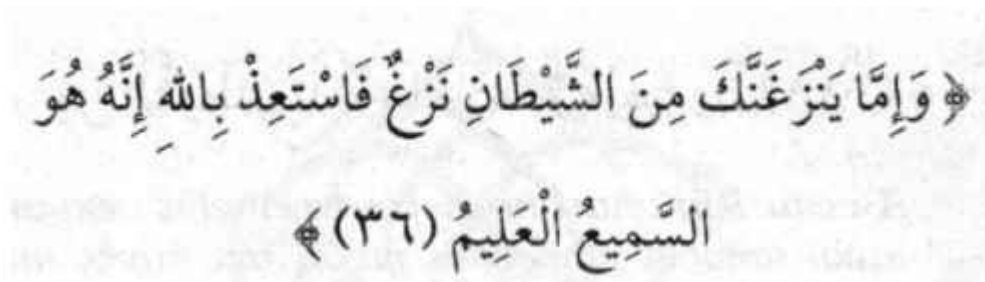 ﴿ وَإِمَّا يَنْزَغَنَّكَ مِنَ الشَّيْطَانِ نَزْغٌ فَاسْتَعِذْ بِاللهِ إِنَّهُ هُوَ
السَّمِيعُ الْعَلِيمُ (٣٦) ﴾